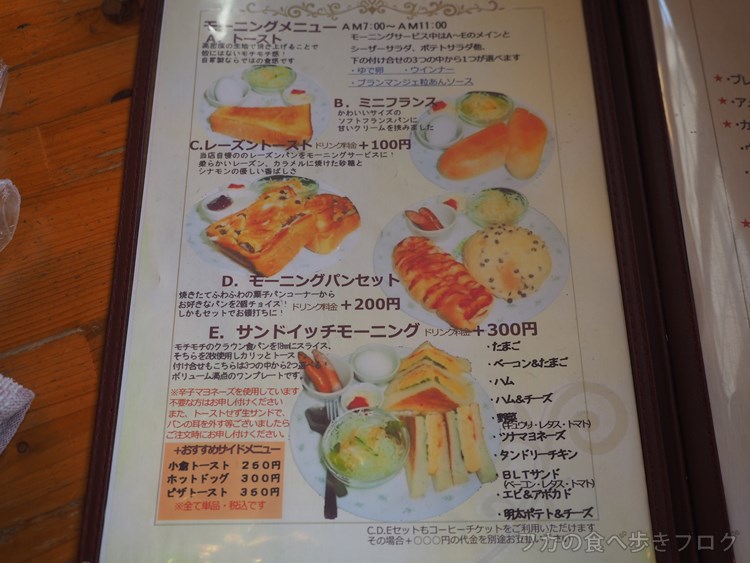 モーニングメニュー AM7:00～AM11:00
A. トースト
高密度の生地で焼き上げることで
他にはないモチモチ感!
自家製ならではの食感です
モーニングサービス中はA～Eのメインと
シーザーサラダ、ポテトサラダ他、
下の付け合せの3つの中から1つが選べます
・ゆで卵 ・ウインナー
・ブランマンジェ粒あんソース
B. ミニフランス
かわいいサイズの
ソフトフランスパンに
甘いクリームを挟みました
C.レーズントースト ドリンク料金+100円
当店自慢ののレーズンパンをモーニングサービスに!
柔らかいレーズン、カラメルに焼けた砂糖と
シナモンの優しい香ばしさ
D. モーニングパンセット
焼きたてふわふわの菓子パンコーナーから
お好きなパンを2個チョイス!
しかもセットでお値打ちに!
ドリンク料金+200円
E. サンドイッチモーニング ドリンク料金+300円
モチモチのクラウン食パンを18㎜にスライス、
そちらを2枚使用しカリッとトースト
付け合せもこちらは3つの中から2つ選べる!
ボリューム満点のワンプレートです。
※辛子マヨネーズを使用しています
不要な方はお申し付けください
また、トーストせず生サンドで、
パンの耳を外す等ございましたら
ご注文時にお申し付けください。
+おすすめサイドメニュー
小倉トースト 260円
ホットドッグ 300円
ピザトースト 350円
※全て単品・税込です
・たまご
・ベーコン&たまご
・ハム
・ハム&チーズ
・野菜
(キュウリ・レタス・トマト)
・ツナマヨネーズ
・タンドリーチキン
・BLTサンド
(ベーコン・レタス・トマト)
・エビ&アボカド
・明太ポテト&チーズ
C.D.Eセットもコーヒーチケットをご利用いただけます
その場合+○○○円の代金を別途お支払い下さい
ツカの食べ歩きブログ
★・プレ
★・ア
★・カ